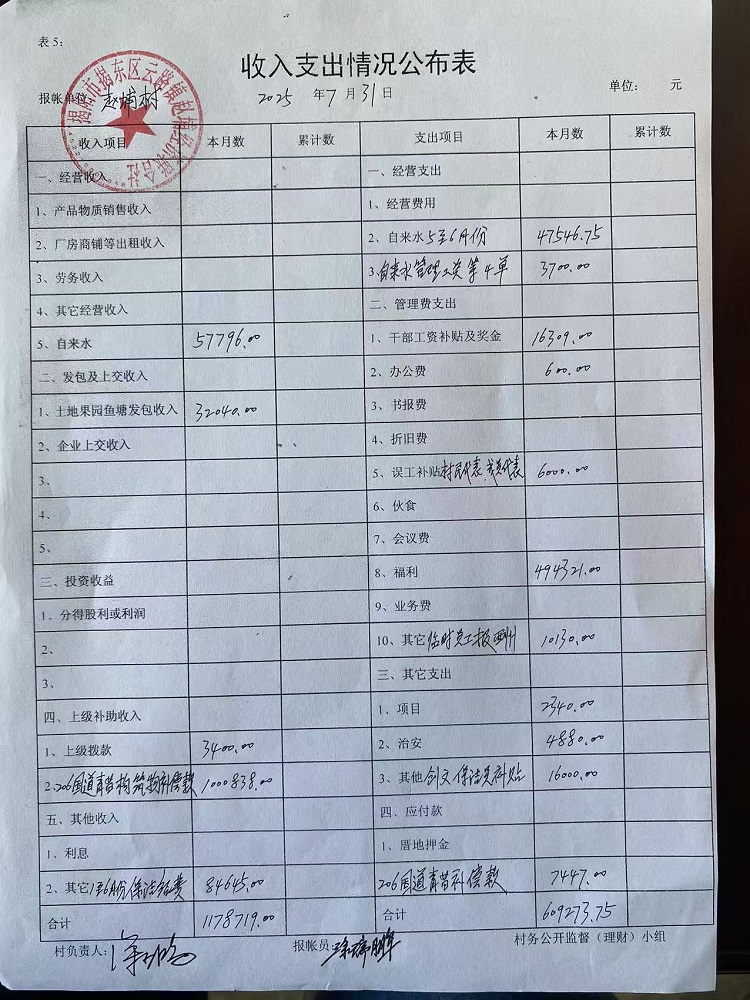 表5:
收入支出情况公布表
报帐单位: 赵埔村 2025 年 7 月 31 日 单位: 元
收入项目 本月数 累计数 支出项目 本月数 累计数
一、经营收入 一、经营支出
1、产品物质销售收入 1、经营费用
2、厂房商铺等出租收入 2、自来水5至6月份 47546.75
3、劳务收入 3.自来水管理工资等4单 3700.00
4、其它经营收入 二、管理费支出
5、自来水 57796.00 1、干部工资补贴及奖金 16309.00
二、发包及上交收入 2、办公费 600.00
1、土地果园鱼塘发包收入 32040.00 3、书报费
2、企业上交收入 4、折旧费
3、 5、误工补贴村民代表、代表 6000.00
4、 6、伙食
5、 7、会议费
三、投资收益 8、福利 494321.00
1、分得股利或利润 9、业务费
2、 10、其它临时员工报 10130.00
3、 三、其它支出
四、上级补助收入 1、项目 2340.00
1、上级拨款 3400.00 2、治安 4880.00
2.206国道青苗构筑物补偿款 1000838.00 3、其他创文保洁员补贴 16000.00
五、其他收入 四、应付款
1、利息 1、厝地押金
2、其它1至6月份保洁经费 84645.00 206国道青苗补偿款 7447.00
合计 1178719.00 合计 609273.75
村负责人: 报帐员: 村务公开监督（理财）小组